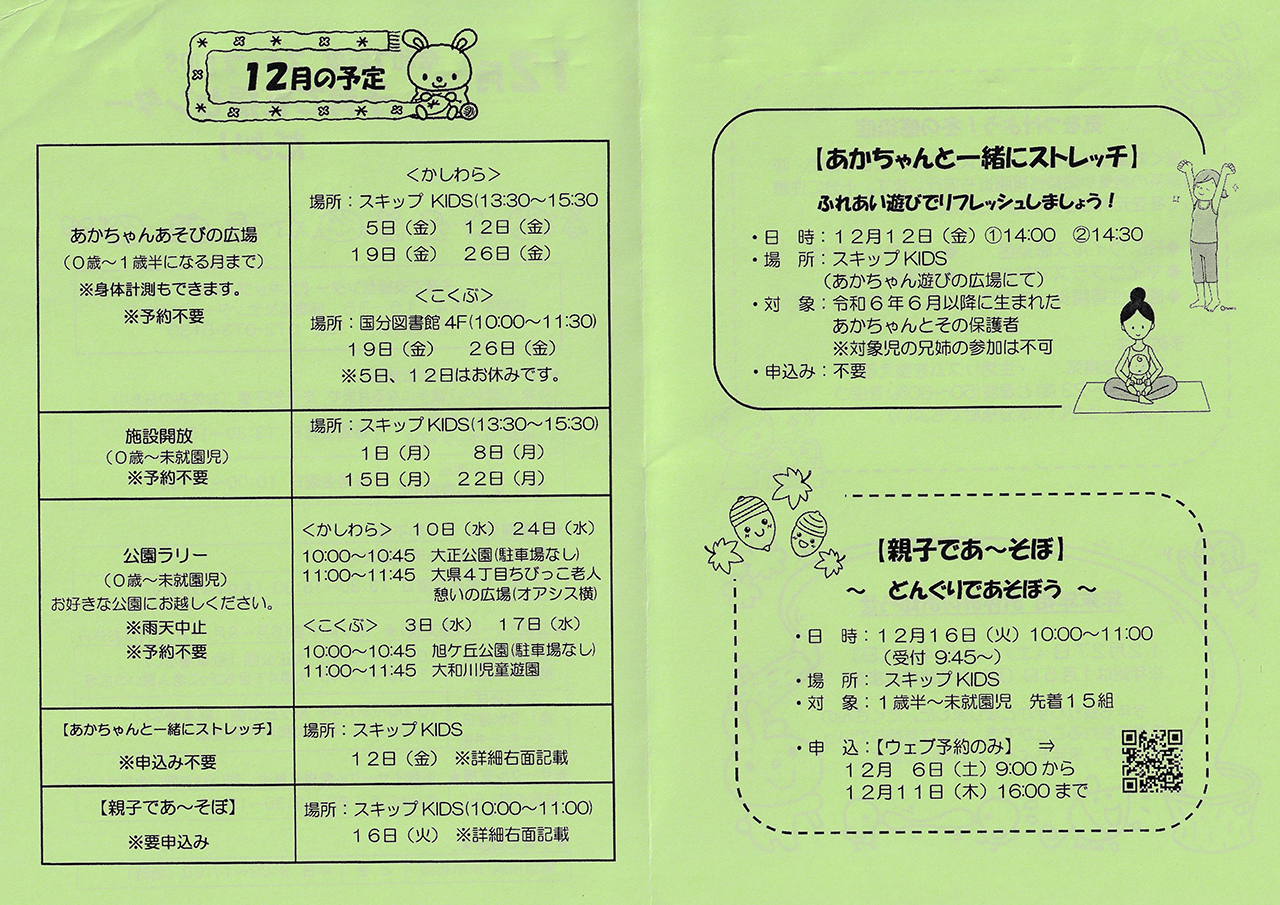 12月の予定
あかちゃんあそびの広場
(0歳～1歳半になる月まで)
※身体計測もできます。
※予約不要
＜かしわら＞
場所：スキップ KIDS(13:30～15:30
5日（金）　12日（金）
19日（金）　26日（金）
＜こくぶ＞
場所：国分図書館 4F(10:00～11:30)
19日（金）　26日（金）
※5日、12日はお休みです。
施設開放
(0歳～未就園児)
※予約不要
場所：スキップKIDS(13:30～15:30)
1日（月）　8日（月）
15日（月）　22日（月）
公園ラリー
(0歳～未就園児)
お好きな公園にお越しください。
※雨天中止
※予約不要
＜かしわら＞　10日（水）　24日（水）
10:00～10:45　大正公園(駐車場なし)
11:00～11:45　大県4丁目ちびっこ老人
憩いの広場(オアシス横)
＜こくぶ＞　3日（水）　17日（水）
10:00～10:45　旭ケ丘公園(駐車場なし)
11:00～11:45　大和川児童遊園
【あかちゃんと一緒にストレッチ】
※申込み不要
場所：スキップKIDS
12日（金）　※詳細右面記載
【親子であ～そぼ】
※要申込み
場所：スキップKIDS(10:00～11:00)
16日（火）　※詳細右面記載
【あかちゃんと一緒にストレッチ】
ふれあい遊びでリフレッシュしましょう！
・日　時：12月12日（金）①14:00　②14:30
・場　所：スキップKIDS
(あかちゃん遊びの広場にて)
・対　象：令和6年6月以降に生まれた
あかちゃんとその保護者
※対象児の兄姉の参加は不可
・申込み：不要
【親子であ～そぼ】
～　どんぐりであそぼう　～
・日　時：12月16日（火）10:00～11:00
（受付 9:45～）
・場　所：スキップKIDS
・対　象：1歳半～未就園児　先着15組
・申　込：【ウェブ予約のみ】　⇒
12月　6日（土）9:00から
12月11日（木）16:00まで